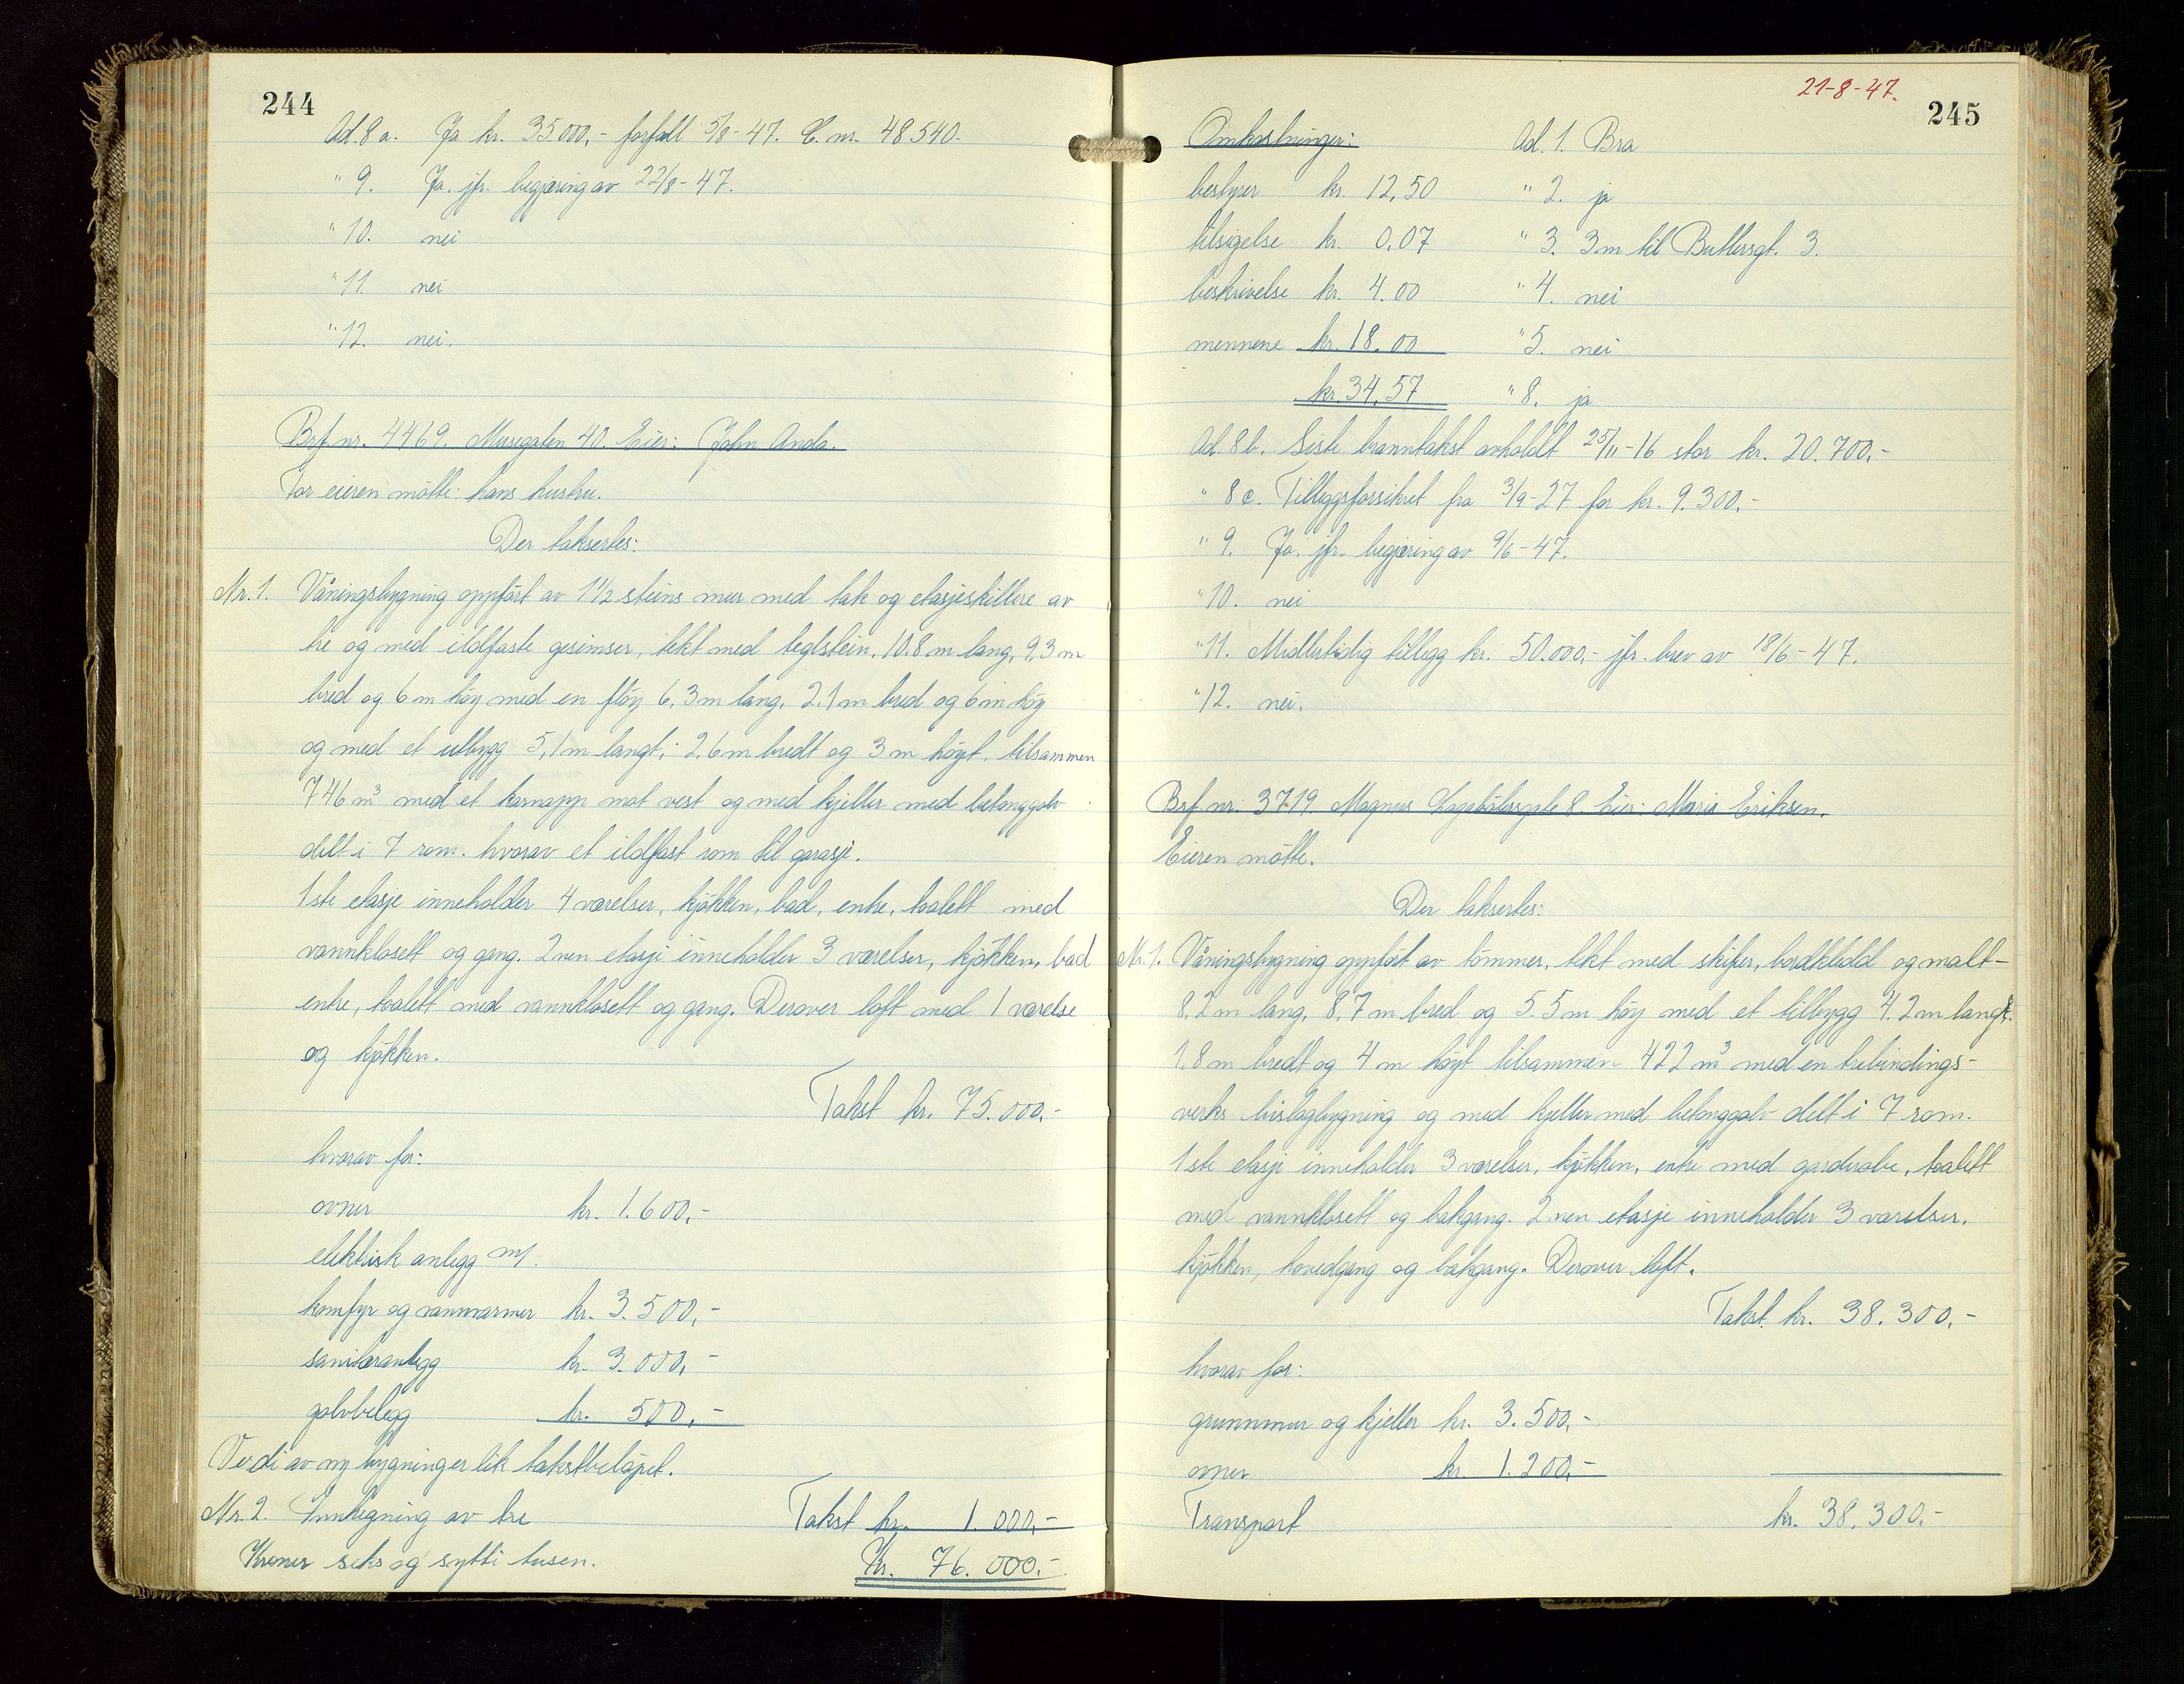 244
Ad. 8 a. Ja kr. 35000,- forfall 5/8-47. C. nr. 48540.
" 9. Ja. jfr. begjæring av 22/8-47.
" 10. nei
" 11. nei
" 12. nei.
Brf. nr. 4469. Musegaten 40. Eier: John Anda.
For eieren møtte: hans hustru.
Der taksertes:
Nr. 1. Våningsbygning oppført av 1 1/2 steins mur med tak og etasjeskillere av
tre og med ildfaste gesimser, tekt med teglstein. 10.8 m lang, 9,3 m
bred og 6 m høy med en fløy 6,3 m lang, 2.1 m bred og 6 m høy
og med et utbygg 5,1 m langt, 2.6 m bredt og 3 m høyt, tilsammen
746 m³ med et karnapp mot vest og med kjeller med betonggolv
delt i 7 rom. hvorav et ildfast rom til garasje.
1ste etasje inneholder 4 værelser, kjøkken, bad, entre, toalett med
vannklosett og gang. 2nen etasje inneholder 3 værelser, kjøkken, bad
entre, toalett med vannklosett og gang. Derover loft med 1 værelse
og kjøkken.
Takst kr. 75.000,-
hvorav for:
ovner kr. 1.600,-
elektrisk anlegg m/
komfyr og vannvarmer kr. 3.500,-
sanitæranlegg kr. 3.000,-
golvbelegg kr. 500,-
Verdi av ny bygning er lik takstbeløpet.
Nr. 2. Innhegning av tre Takst kr. 1.000,-
Kroner seks og sytti tusen. Kr. 76.000.-
21-8-47.
245
Omkostninger: Ad. 1. Bra
bestyrer kr. 12,50 " 2. ja
tilsigelse kr. 0,07 " 3. 3 m til Buttersgt. 3.
beskrivelse kr. 4.00 " 4. nei
mennene kr. 18.00 " 5. nei
kr. 34,57 " 8. ja
Ad. 8 b. Siste branntakst avholdt 25/11-16 stor kr. 20.700,-
" 8 c. Tilleggsforsikret fra 3/9-27 for kr. 9.300,-
" 9. Ja. jfr. begjæring av 9/6-47.
" 10. nei
" 11. Midlertidig tillegg kr. 50.000,- jfr. brev av 18/6-47.
" 12. nei.
Brf. nr. 3719. Magnus Lagabøtersgate 8. Eier: Maria Eriksen.
Eieren møtte.
Der taksertes:
Nr. 1. Våningsbygning oppført av tømmer, tekt med skifer, bordkledd og malt-
8.2 m lang, 8,7 m bred og 5.5 m høy med et tilbygg 4.2 m langt.
1.8 m bredt og 4 m høyt tilsammen 422 m³ med en trebindings-
verks bislagbygning og med kjeller med betonggolv delt i 7 rom.
1ste etasje inneholder 3 værelser, kjøkken, entre med garderobe, toalett
med vannklosett og bakgang. 2nen etasje inneholder 3 værelser,
kjøkken, hovedgang og bakgang. Derover loft.
Takst. kr. 38.300,-
hvorav for:
grunnmur og kjeller kr. 3.500,-
ovner kr. 1.200,-
Transport kr. 38.300.-